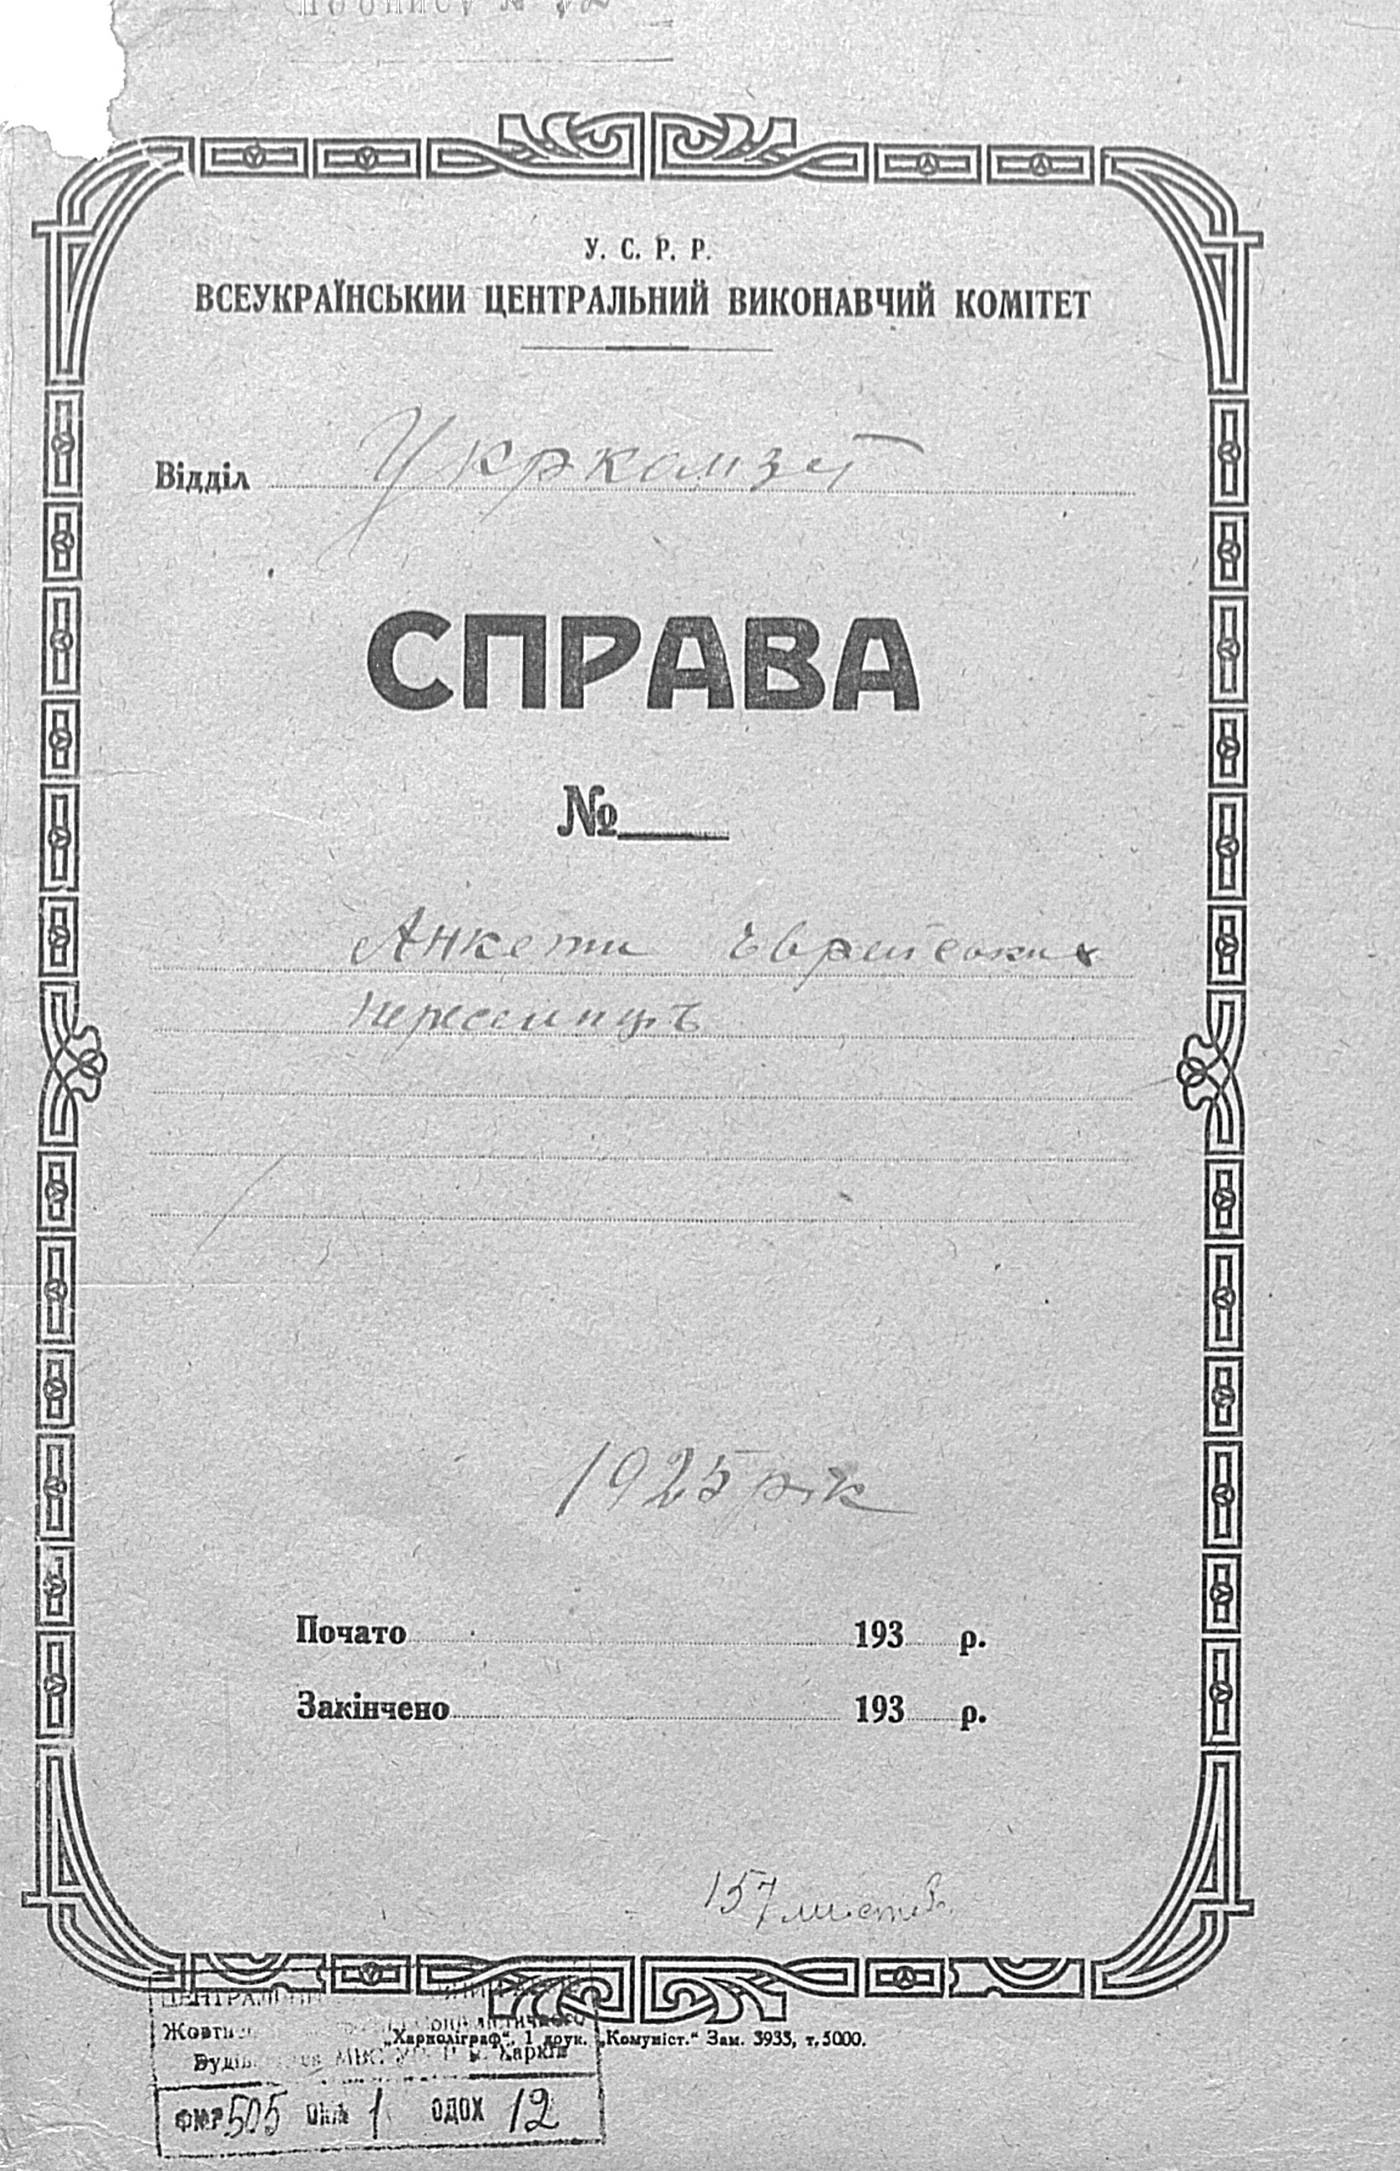 У. С. Р. Р.
ВСЕУКРАЇНСЬКИИ ЦЕНТРАЛЬНИЙ ВИКОНАВЧИЙ КОМІТЕТ
Відділ Укркомзет
СПРАВА
№
Анкети єврейських
переселенців
1925 рік
Почато 193 р.
Закінчено 193 р.
157 листов
„Харполіграф“. 1 друк. „Комуніст.“ Зам. 3933, т. 5000.
МВС УРСР м. Харків
505 1 12